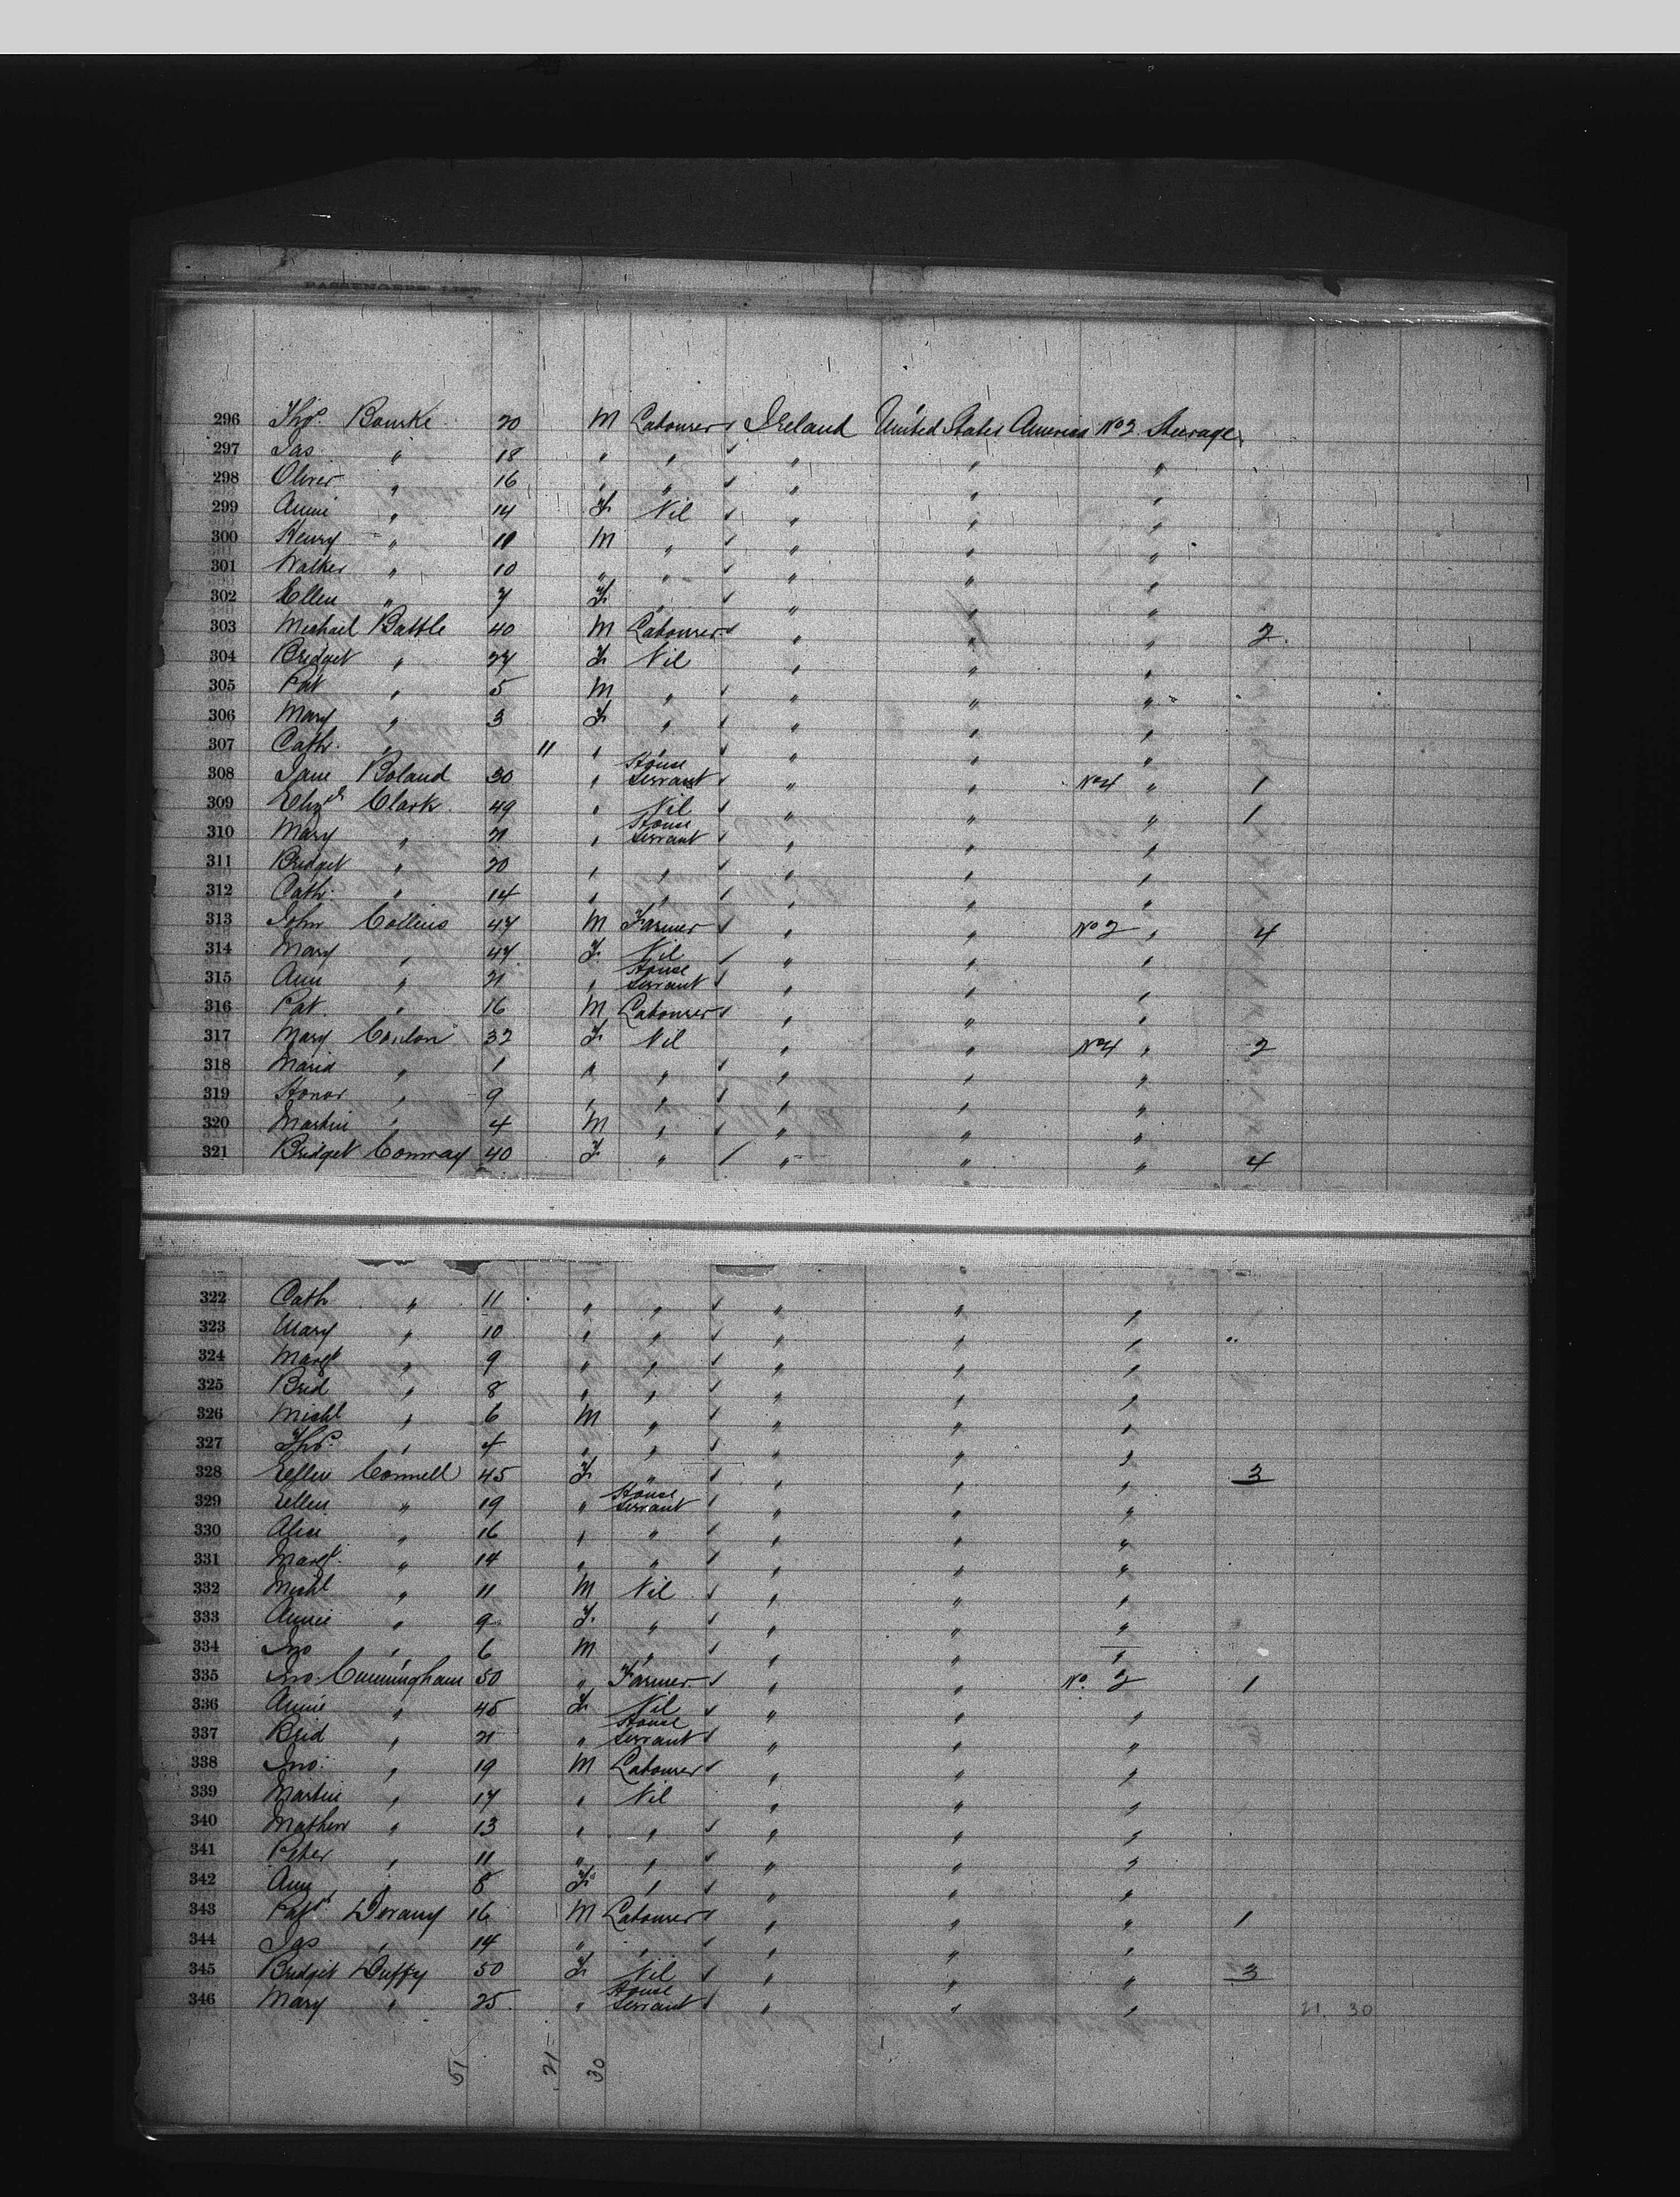 PASSENGERS' LIST
296 Thos. Bourke 20 M Labourer Ireland United States America No 2 Steerage
297 Jas " 18 " " " " "
298 Oliver " 16 " " " " "
299 Annie " 14 F Nil " " "
300 Henry " 11 M " " " "
301 Walter " 10 " " " " "
302 Ellen " 7 F " " " "
303 Michael Battle 40 M Labourer " " " 2
304 Bridget " 27 F Nil " " "
305 Pat " 5 M " " " "
306 Mary " 3 F " " " "
307 Cath. " 11 " " " " "
308 Jane Boland 30 " House Servant " " No 4 " 1
309 Elizth Clark 49 " Nil " " " 1
310 Mary " 21 " House Servant " " "
311 Bridget " 20 " " " " "
312 Cath. " 14 " " " " "
313 John Collins 47 M Farmer " " No 2 " 4
314 Mary " 47 F Nil " " "
315 Ann " 21 " House Servant " " "
316 Pat. " 16 M Labourer " " "
317 Mary Conlon 32 F Nil " " No 4 " 2
318 Maria " 1 " " " " "
319 Honor " 9 " " " " "
320 Martin " 4 M " " " "
321 Bridget Conway 40 F " " " " 4
322 Cath " 11 " " " " "
323 Mary " 10 " " " " "
324 Margt " 9 " " " " "
325 Brid " 8 " " " " "
326 Michl " 6 M " " " "
327 Thos. " 4 " " " " "
328 Ellen Connell 45 F " " " " 3
329 Ellen " 19 " House Servant " " "
330 Alice " 16 " " " " "
331 Margt. " 14 " " " " "
332 Michl " 11 M Nil " " "
333 Annie " 9 F " " " "
334 Jno " 6 M " " " "
335 Jno. Cunningham 50 " Farmer " " No. 2 1
336 Annie " 45 F Nil " " "
337 Brid " 21 " House Servant " " "
338 Jno. " 19 M Labourer " " "
339 Martin " 17 " Nil " " "
340 Mathew " 13 " " " " "
341 Peter " 11 " " " " "
342 Ann " 8 F " " " "
343 Patk Dorany 16 M Labourer " " " 1
344 Jas " 14 " " " " "
345 Bridget Duffy 50 F Nil " " " 3
346 Mary " 25 " House Servant " " " 21 30
51 21 30